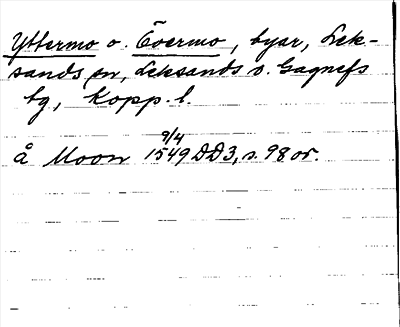 Yttermo o. Överm̄o, byar, Lek-
sands sn, Leksands o. Gagnefs
tg, Kopp. l.
9/4
å Moon 1549 DD3, s. 98 or.